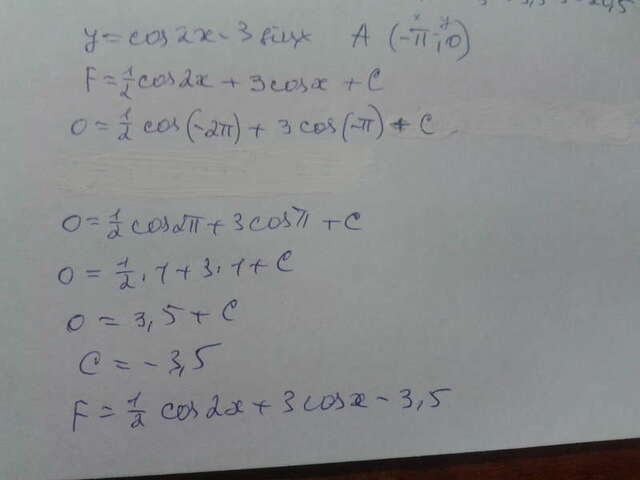 y = cos2x - 3 sinx A (-π; 0)
x y
F = 1/2 cos2x + 3cosx + C
0 = 1/2 cos(-2π) + 3cos(-π) + C
0 = 1/2 cos2π + 3cosπ + C
0 = 1/2 · 1 + 3 · 1 + C
0 = 3,5 + C
C = -3,5
F = 1/2 cos2x + 3cosx - 3,5